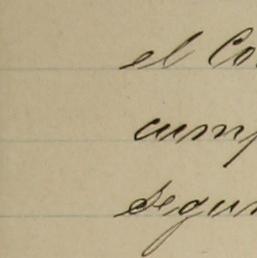 el Co
cump
segun